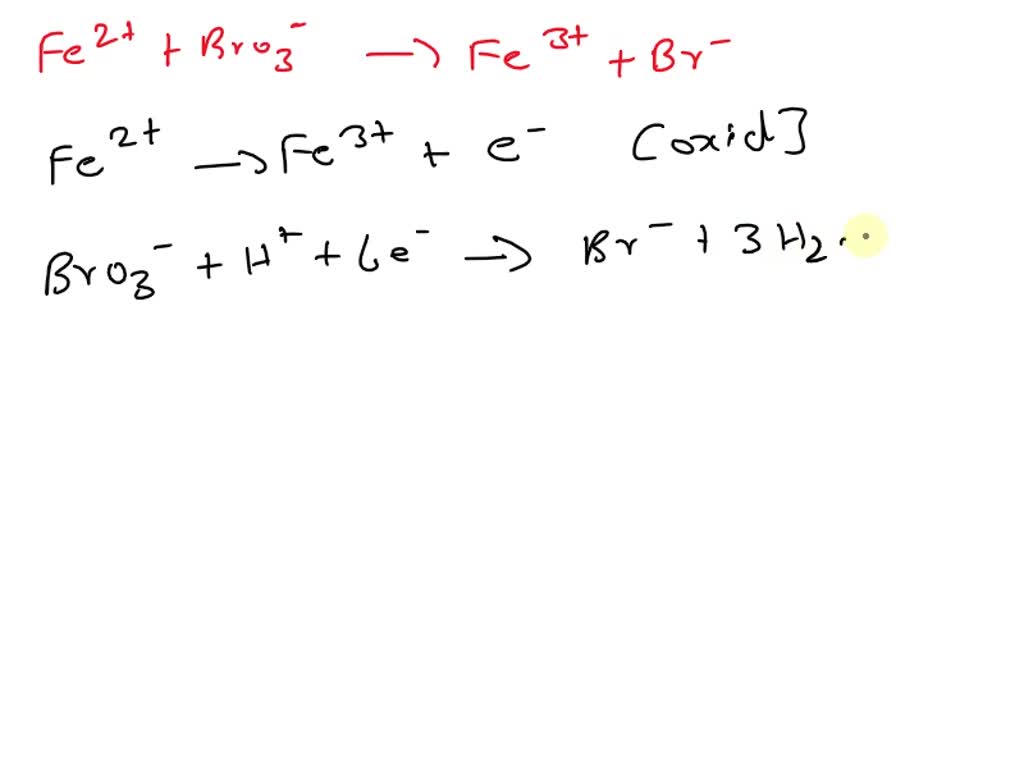 Fe²⁺ + BrO₃⁻ → Fe³⁺ + Br⁻
Fe²⁺ → Fe³⁺ + e⁻ [oxid]
BrO₃⁻ + H⁺ + 6e⁻ → Br⁻ + 3H₂